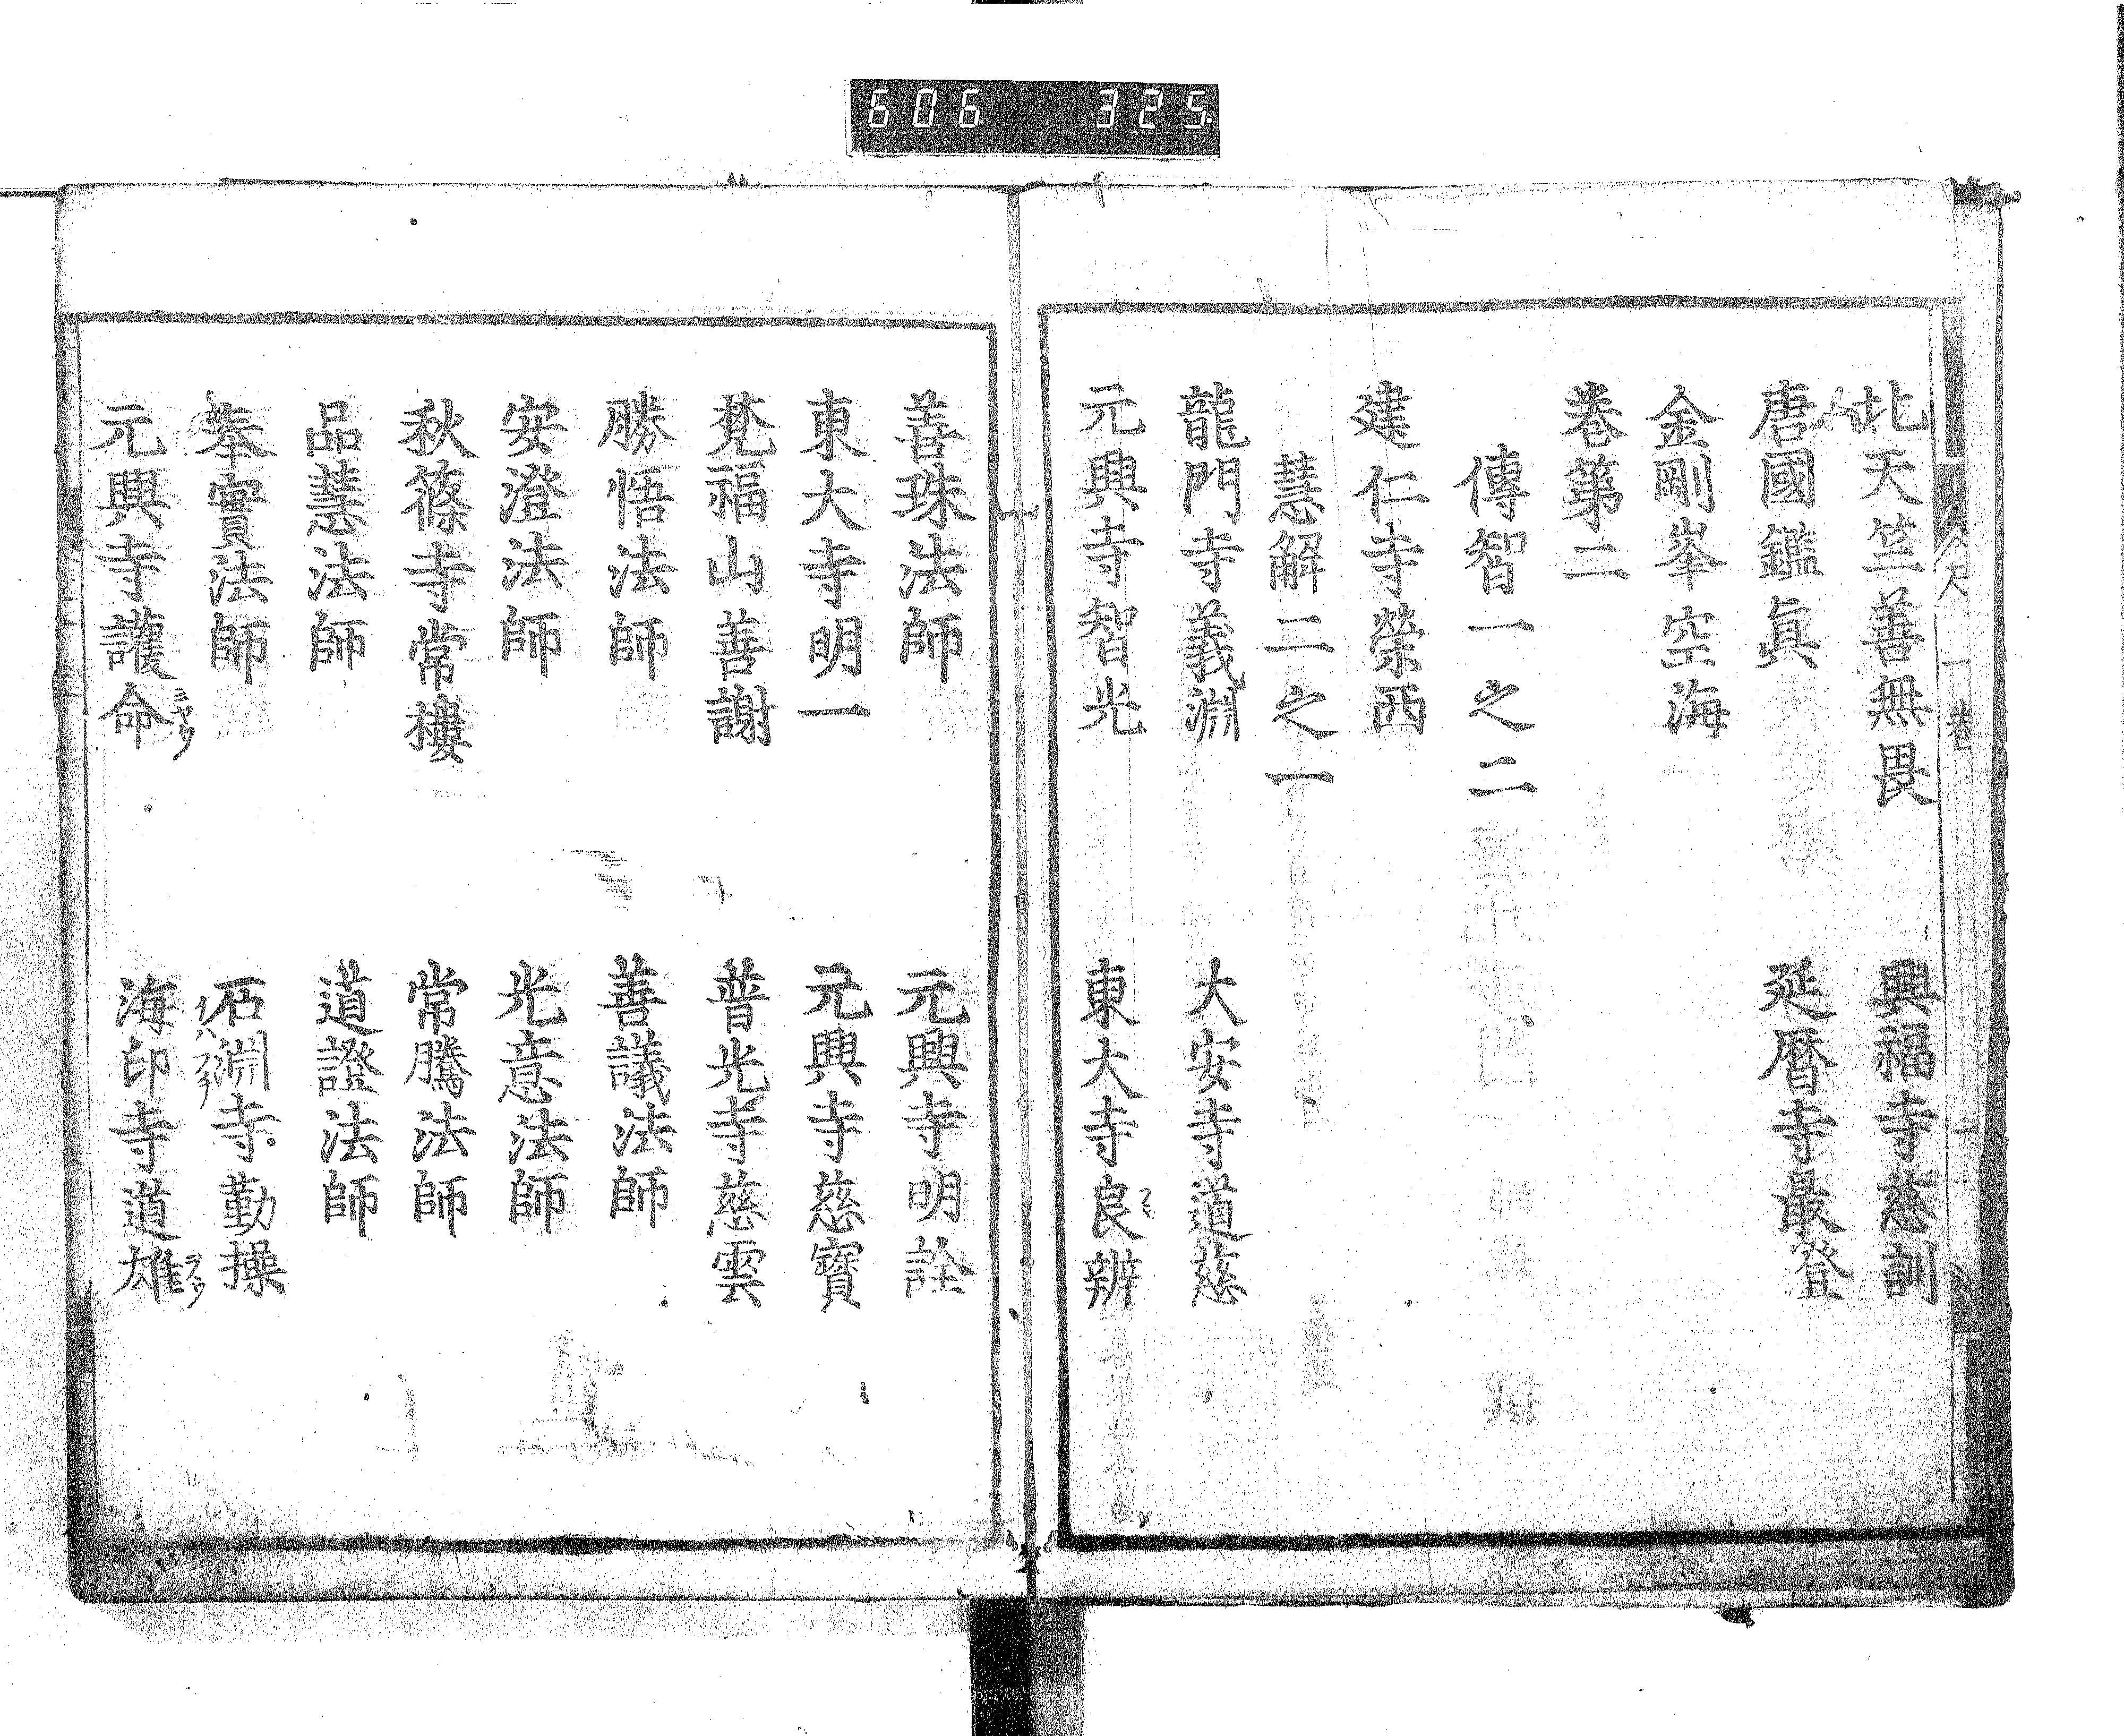 606 325
北天竺善無畏 興福寺慈訓
唐國鑑眞 延曆寺最登
金剛峯空海
卷第二
傳智一之二
建仁寺榮西
慧解二之一
龍門寺義淵 大安寺道慈
元興寺智光 東大寺良辨
善珠法師 元興寺明詮
東大寺明一 元興寺慈寳
梵福山善謝 普光寺慈雲
勝悟法師 善議法師
安澄法師 光意法師
秋篠寺常樓 常騰法師
品慧法師 道證法師
奉實法師 石淵寺勤操
イハフチ
元興寺護命 海印寺道雄
ミヤウ